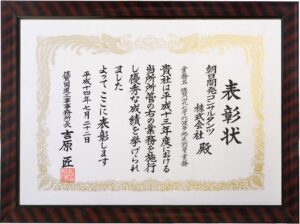 表彰状
朝日開発コンサルタンツ
株式会社 殿
業務名
貴社は平成十三年度における
当所所管の右の業務を施行
し優秀な成績を挙げられ
ました
よってここに表彰します
平成十四年七月二十二日
佐賀国道工事事務所長
吉原 匠